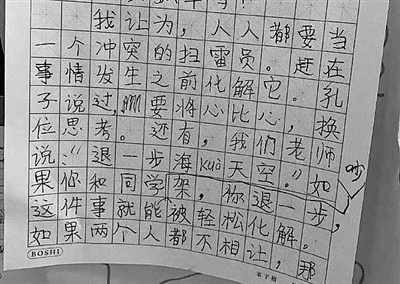 我让为，人人都要当
一个冲突的扫雷员。赶在
事情发生之前化解它。孔
子说过，咱要将心比心，换
位思考。还有，我们老师
说：“退一步海kuò天空。”如
果你和同学吵架，你退一步，
这件事就能被轻松化解。
如果两个人都不相让，那
BOSHI